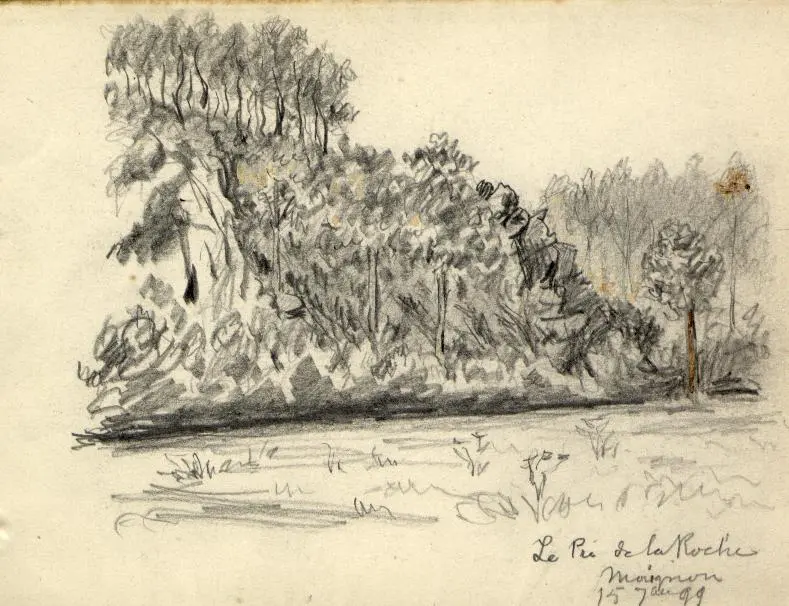 Le Pré de la Roche
Moignon
15 7bre 99